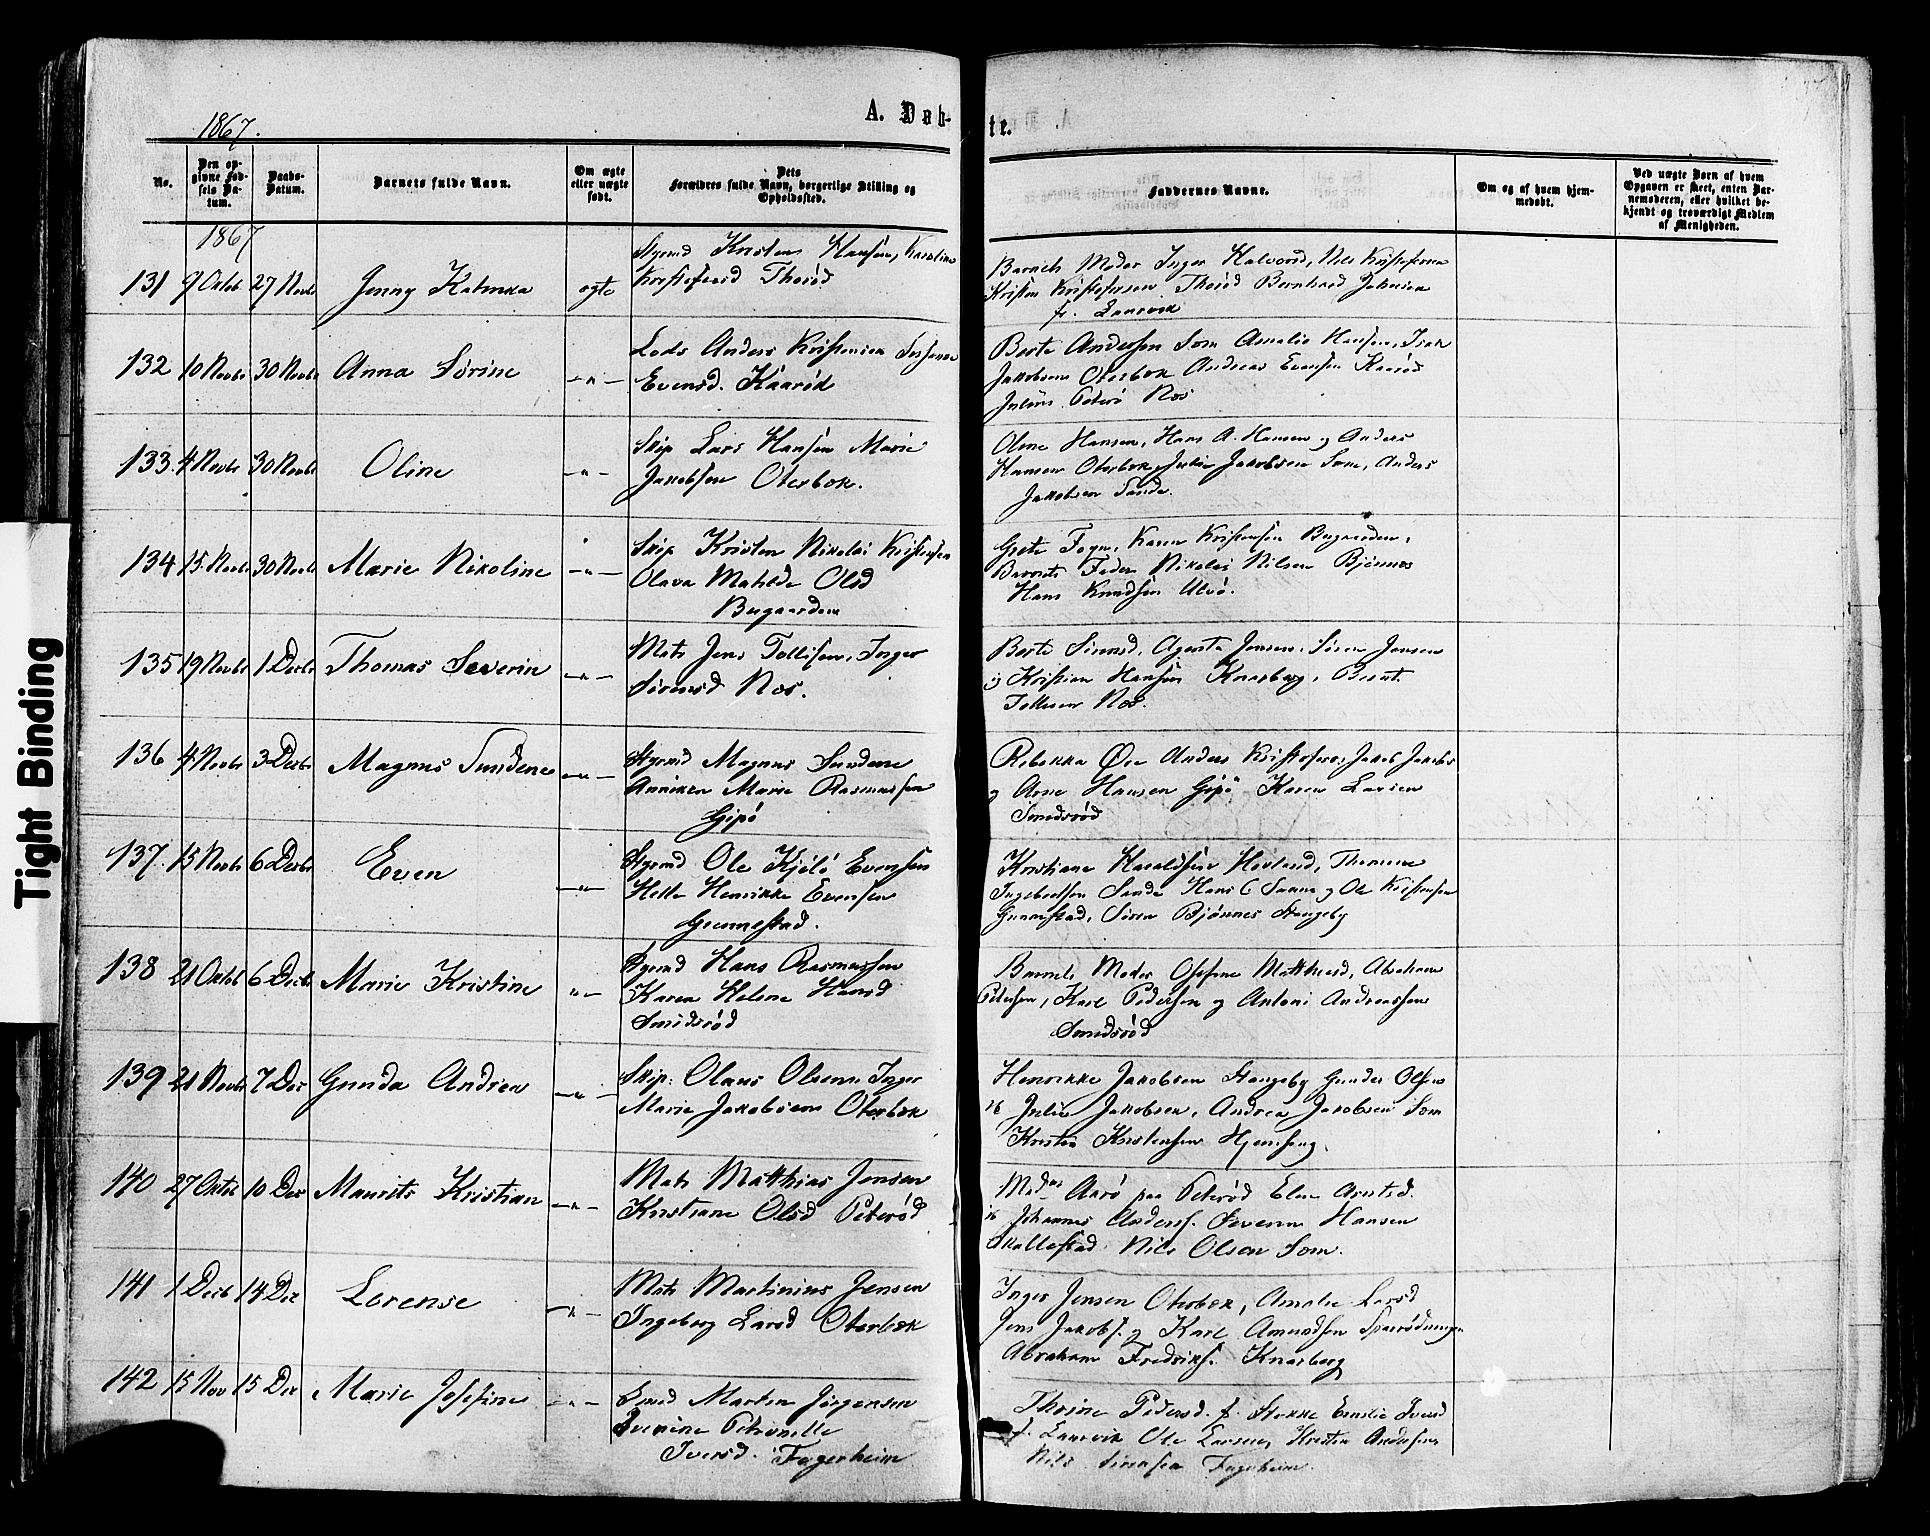 1867.
A. Døb-
te.
No.
Den op-
givne Fød-
sels Da-
tum.
Daabs-
Datum.
Barnets fulde Navn.
Om ægte
eller uægte
født.
Dets
Forældres fulde Navn, borgerlige Stilling og
Opholdssted.
Faddernes Navne.
Om og af hvem hjem-
medøbt.
Ved uægte Børn af hvem
Opgaven er skeet, enten Bar-
nemoderen, eller hvilket be-
kjendt og troværdigt Medlem
af Menigheden.
1867
131 9 Oktob 27 Novbr Jenny Katinka ægte
Styrmd Kristen Hansen, Karoline
Kristofersd Thorød
Barnets Moder Inger Halvorsd, Nils Kristofersen
Kristen Kristofersen Thorød Bernhard Johnsen
fr. Laurvik
132 10 Novbr 30 Novbr Anna Sørine -"-
Lods Anders Kristensen
Evensd. Kaarød
Berte Andersen Som Amalie Hansen, Isak
Jakobsen Oterbæk Andreas Evensen Kaarød
Julius Peterø Nos
133. 4 Novbr 30 Novbr Oline -"-
Skip Lars Hansen Marie
Jakobsen Oterbæk.
Hansen, Hans A. Hansen og Anders
Hansen Oterbæk, Julie Jakobsen Som, Anders
Jakobsen Sande.
134 15 Novbr 30 Novbr Marie Nikoline -"-
Skip Kristen Nikolai Kristensen
Olava Matilde Olsd
Bugaarden
Grete Fogn, Karen Kristensen Bugaarden,
Barnets Fader Nikolai Nilsen Bjønnes
Hans Knudsen Ulvø.
135 19 Novbr 1 Decbr Thomas Severin -"-
Mats Jens Tollefsen, Inger
Sørensd Nos.
Berte Sørensd, Agnete Jensen, Søren Jensen
og Kristian Hansen Knarberg, Bernt
Tollefsen Nos.
136 4 Novbr 3 Decbr Magnus Sundene -"-
Styrmd Magnus Sundene
Anniken Marie Rasmussen
Gipø
Rebekka Øre Anders Kristofersen, Jakob Jakobs
og Arne Hansen Gipø Karen Larsen
Smidsrød
137. 15 Novbr 6 Decbr Even -"-
Styrmd Ole Kjølø Evensen
Helle Henrikke Evensen
Gunnestad.
Kristiane Haraldsen Hovland, Thomine
Ingebretsen Sande Hans C Sanne og Ole Kristensen
Gunnestad, Søren Bjønnes Stangeby
138 21 Oktob 6 Decbr Marie Kristine "-
Styrmd Hans Rasmussen
Karen Helene Hansd
Smidsrød
Barnets Moder Josefine Matthisd, Abraham
Petersen, Karl Pedersen og Antoni Andreassen
Smidsrød
139 21 Novbr 7 Dec Gunda Andrea -"-
Skip: Olaus Olsen, Inger
Marie Jakobsen Oterbæk
Henrikke Jakobsen Stangeby Gunder Olsen
Julie Jakobsen, Andrea Jakobsen Som
Kristen Kristensen Hjemseng.
140 27 Oktb 10 Dec Maurits Kristian -"-
Mats Matthias Jensen
Kristiane Olsd Peterød
Mad. Aarø paa Peterød Elen Arntsd.
Johannes Anderss. Severin Hansen
Skallestad. Nils Olsen Som.
141 1 Decb 14 Dec Lorense -"-
Mats Martinius Jensen
Ingeborg Larsd Oterbæk
Inger Jensen Oterbæk, Amalie Larsd
Jens Jakobs. og Karl Amundsen
Abraham Fredriks. Knarberg
142 15 Nov 15 Dec Marie Josefine -"-
Smed Martin Jørgensen
Severine Petronelle
Iversd. Fagerheim
Thorine Pedersd. f. Stokke Emilie Iversd
f. Laurvik Ole Larsen, Kristen Andersen
Nils Sørensen Fagerheim.
Tight Binding